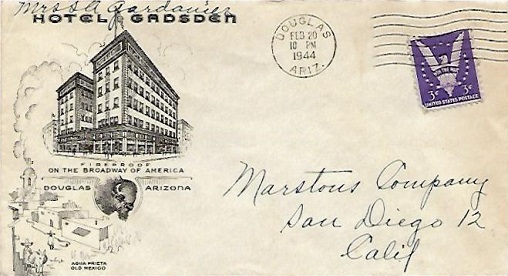 Mrs S A Gardanier
HOTEL GADSDEN
FIREPROOF
ON THE BROADWAY OF AMERICA
DOUGLAS ARIZONA
AGUA PRIETA
OLD MEXICO
DOUGLAS
FEB 20
10 PM
1944
ARIZ.
WIN THE WAR
3¢ 3¢
UNITED STATES POSTAGE
Marstons Company
San Diego 12
Calif